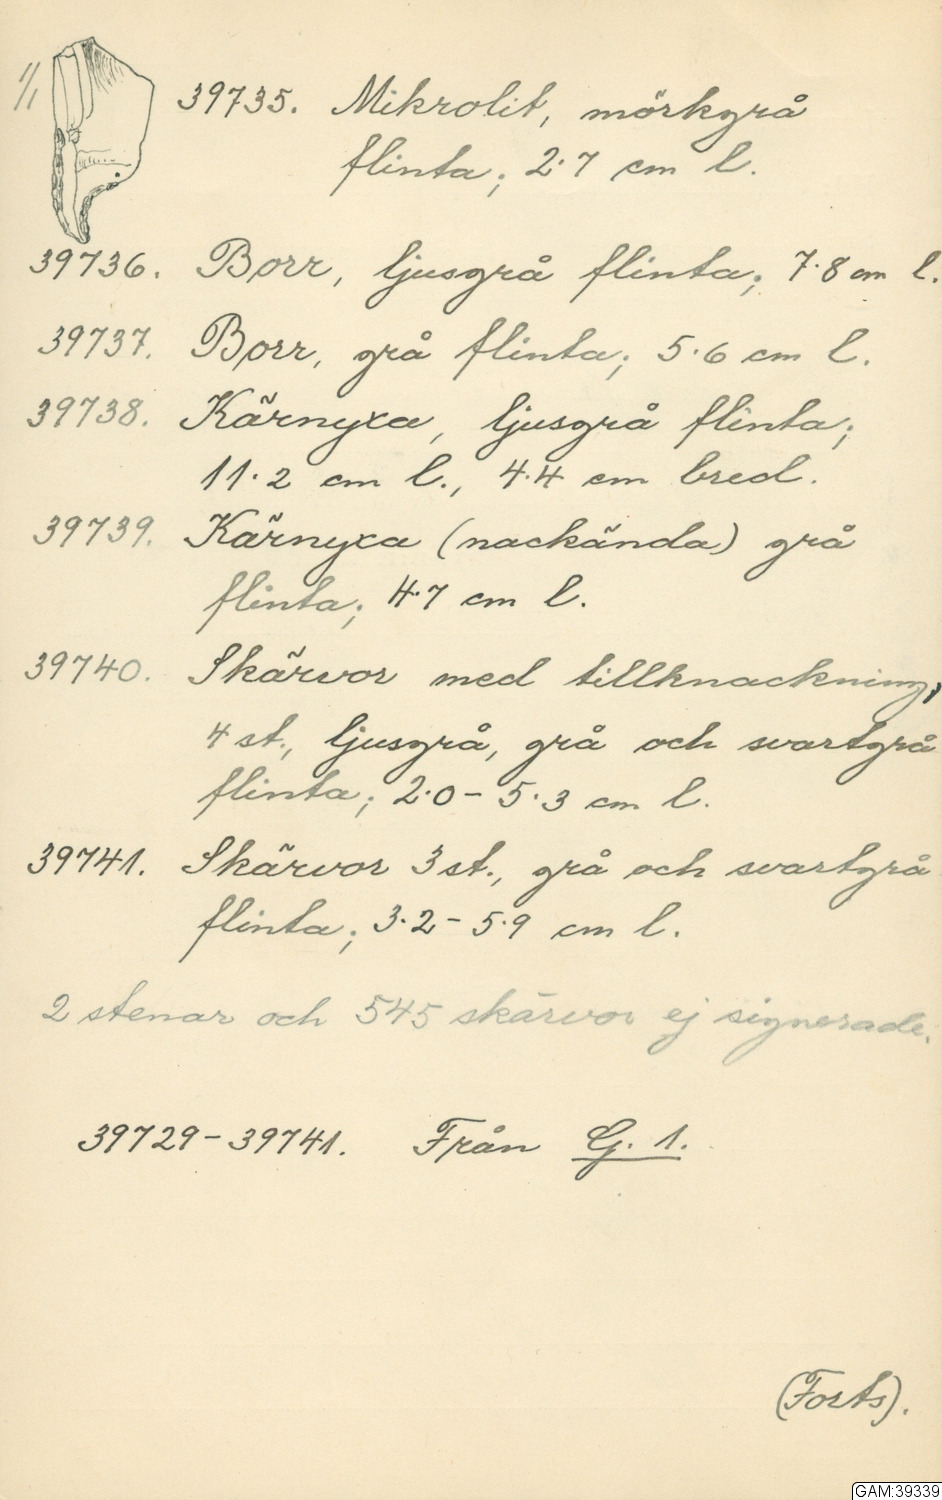 1/1
39735. Mikrolit, mörkgrå
flinta; 2·7 cm l.
39736. Borr, ljusgrå flinta; 7·8 cm l.
39737. Borr, grå flinta; 5·6 cm l.
39738. Kärnyxa, ljusgrå flinta;
11·2 cm l., 4·4 cm bred.
39739. Kärnyxa (nackända) grå
flinta; 4·7 cm l.
39740. Skärvor med tillknackning,
4 st., ljusgrå, grå och svartgrå
flinta; 2·0 – 5·3 cm l.
39741. Skärvor 3 st., grå och svartgrå
flinta; 3·2 – 5·9 cm l.
2 stenar och 545 skärvor ej signerade.
39729 – 39741. Från G. 1.
(Forts).
GAM:39339